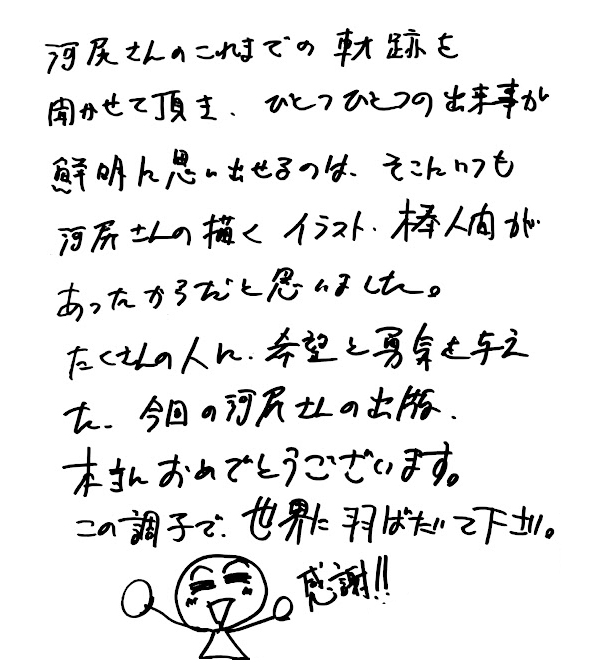 河尻さんのこれまでの軌跡を
聞かせて頂き、ひとつひとつの出来事が
鮮明に思い出せるのは、そこにいつも
河尻さんの描くイラスト、棒人間が
あったからだと思いました。
たくさんの人に、希望と勇気を与え
た、今回の河尻さんの出版、
本当におめでとうございます。
この調子で、世界に羽ばたいて下さい。
感謝!!